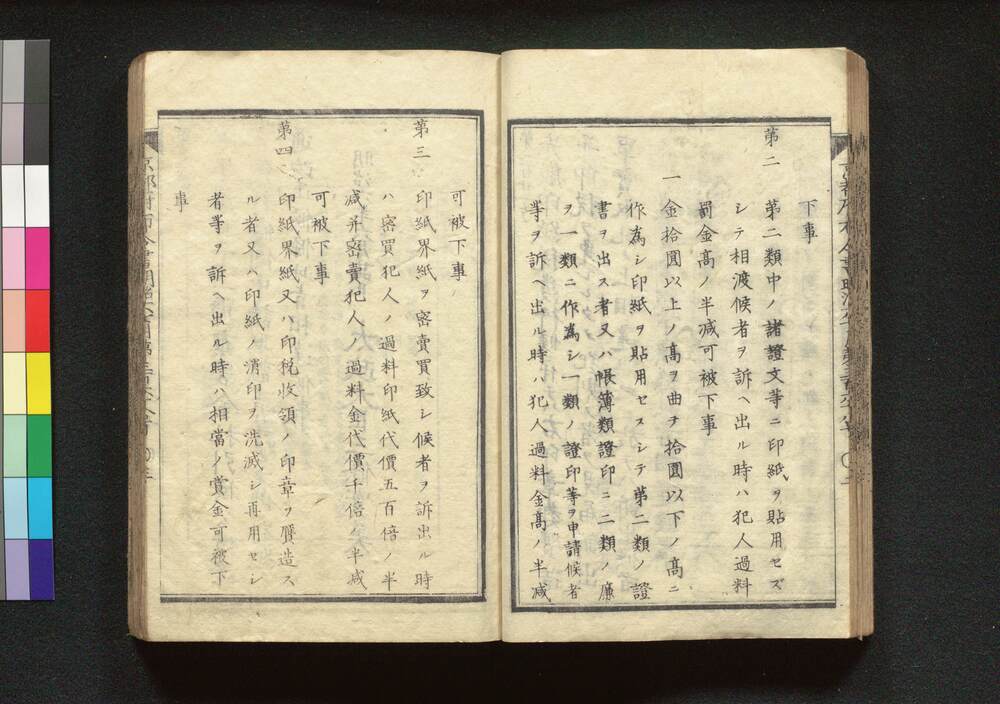 下事
第二 第二類中ノ諸證文等ニ印紙ヲ貼用セズ
シテ相渡候者ヲ訴ヘ出ル時ハ犯人過料
罰金高ノ半減可被下事
一 金拾圓以上ノ高ヲ曲テ拾圓以下ノ高ニ
作為シ印紙ヲ貼用セスシテ第二類ノ證
書ヲ出ス者又ハ帳簿類證印ニ二類ノ廉
ヲ一類ニ作為シ一類ノ證印等ヲ申請候者
等ヲ訴ヘ出ル時ハ犯人過料金高ノ半減
可被下事
第三 印紙界紙ヲ密賣買致シ候者ヲ訴出ル時
ハ密買犯人ノ過料印紙代價五百倍ノ半
减并密賣犯人ノ過料金代價千倍ノ半减
可被下事
第四 印紙界紙又ハ印税收領ノ印章ヲ贋造ス
ル者又ハ印紙ノ消印ヲ洗滅シ再用セシ
者等ヲ訴ヘ出ル時ハ相當ノ賞金可被下
事